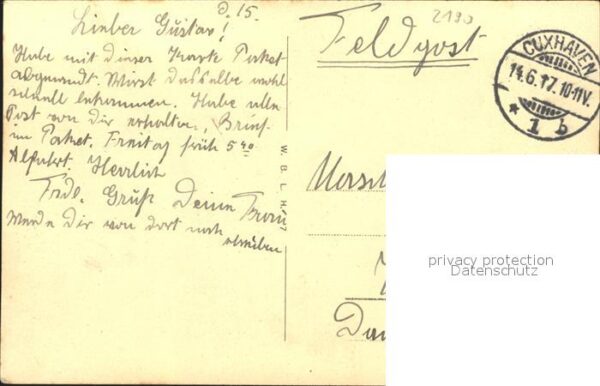 d. 15.
Lieber Gustav!
Habe mit dieser Karte Paket
abgesandt. Wirst dasselbe wohl
schnell bekommen. Habe alle
Post von dir erhalten, Brief
im Paket. Freitag früh 5 40
Abfahrt. Herzlich
Frdl. Gruß Deine
Werde Dir von dort noch
schreiben
2190
Feldpost
CUXHAVEN
14.6.17. 10-11V.
* 1 b
W.B.L.H.
privacy protection
Datenschutz